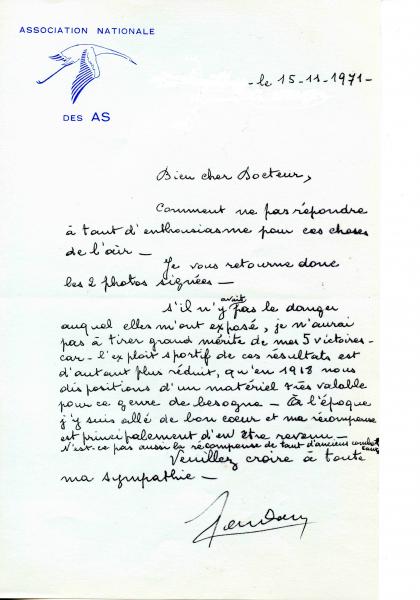 ASSOCIATION NATIONALE
DES AS
- le 15-11-1971 -
Bien cher Docteur,
Comment ne pas répondre
à tant d'enthousiasme pour ces choses
de l'air -
Je vous retourne donc
les 2 photos signées -
S'il n'y avait pas le danger
auquel elles m'ont exposé, je n'aurai
pas à tirer grand mérite de mes 5 victoires -
car - l'exploit sportif de ces résultats est
d'autant plus réduit, qu'en 1918 nous
dispositions d'un matériel très valable
pour ce genre de besogne - A l'époque
j'y suis allé de bon cœur et ma récompense
est principalement d'en être revenu -
N'est-ce pas aussi la récompense de tant d'anciens combattants
Veuillez croire à toute
ma sympathie -